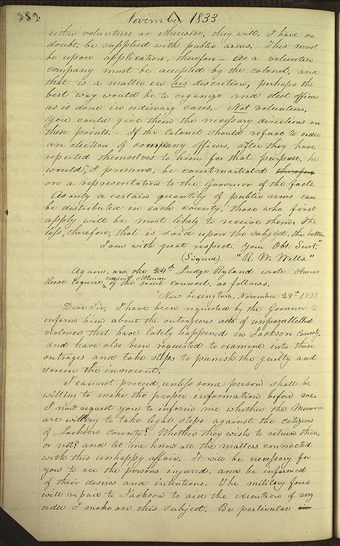 382 November 1833
either volunteers or otherwise, they will, I have no
doubt, be supplied with public arms. This must
be upon application, therefore – As a volunteer
company must be accepted by the colonel, and
that is a matter in his discretion, perhaps the
best way would be to organize and elect officers
as is done in ordinary cases – Not volunteers,
you could give them the necessary directions on
these points. If the Colonel should refuse to order
an election of company officers, after they have
reported themselves to him for that purpose, he
would, I presume, be court martialed therefore
on a representation to the Governor of the facts.
As only a certain quantity of public arms can
be distributed in each county, those who first
apply will be most likely to receive them. The
less, therefore, that is said upon the subject the better.
I am with great respect, Your Obt Servt
(Signed) "R. W. Wells"
Again, on the 24th Judge Ryland wrote Amos
Reese Esquire, circuit Attorney, of the same council, as follows.
"New Lexington, November 24th 1833.
Dear Sir, I have been requested by the Governor to
inform him about the outrageous acts of unparallelled
violence that have lately happened in Jackson County,
and have also been requested to examine into these
outrages and take steps to punish the guilty and
screen the innocent.
I cannot proceed, unless some person shall be
willing to make the proper information before me.
I now request you to inform me whether the Mormons
are willing to take legal steps against the citizens
of Jackson County? Whether they wish to return there
or not? and let me know all the matters connected
with this unhappy affair. It will be necessary for
you to see the persons injured, and be informed
of their desires and intentions. The military force
will repair to Jackson to aid the execution of any
order I make on this subject. Be particular